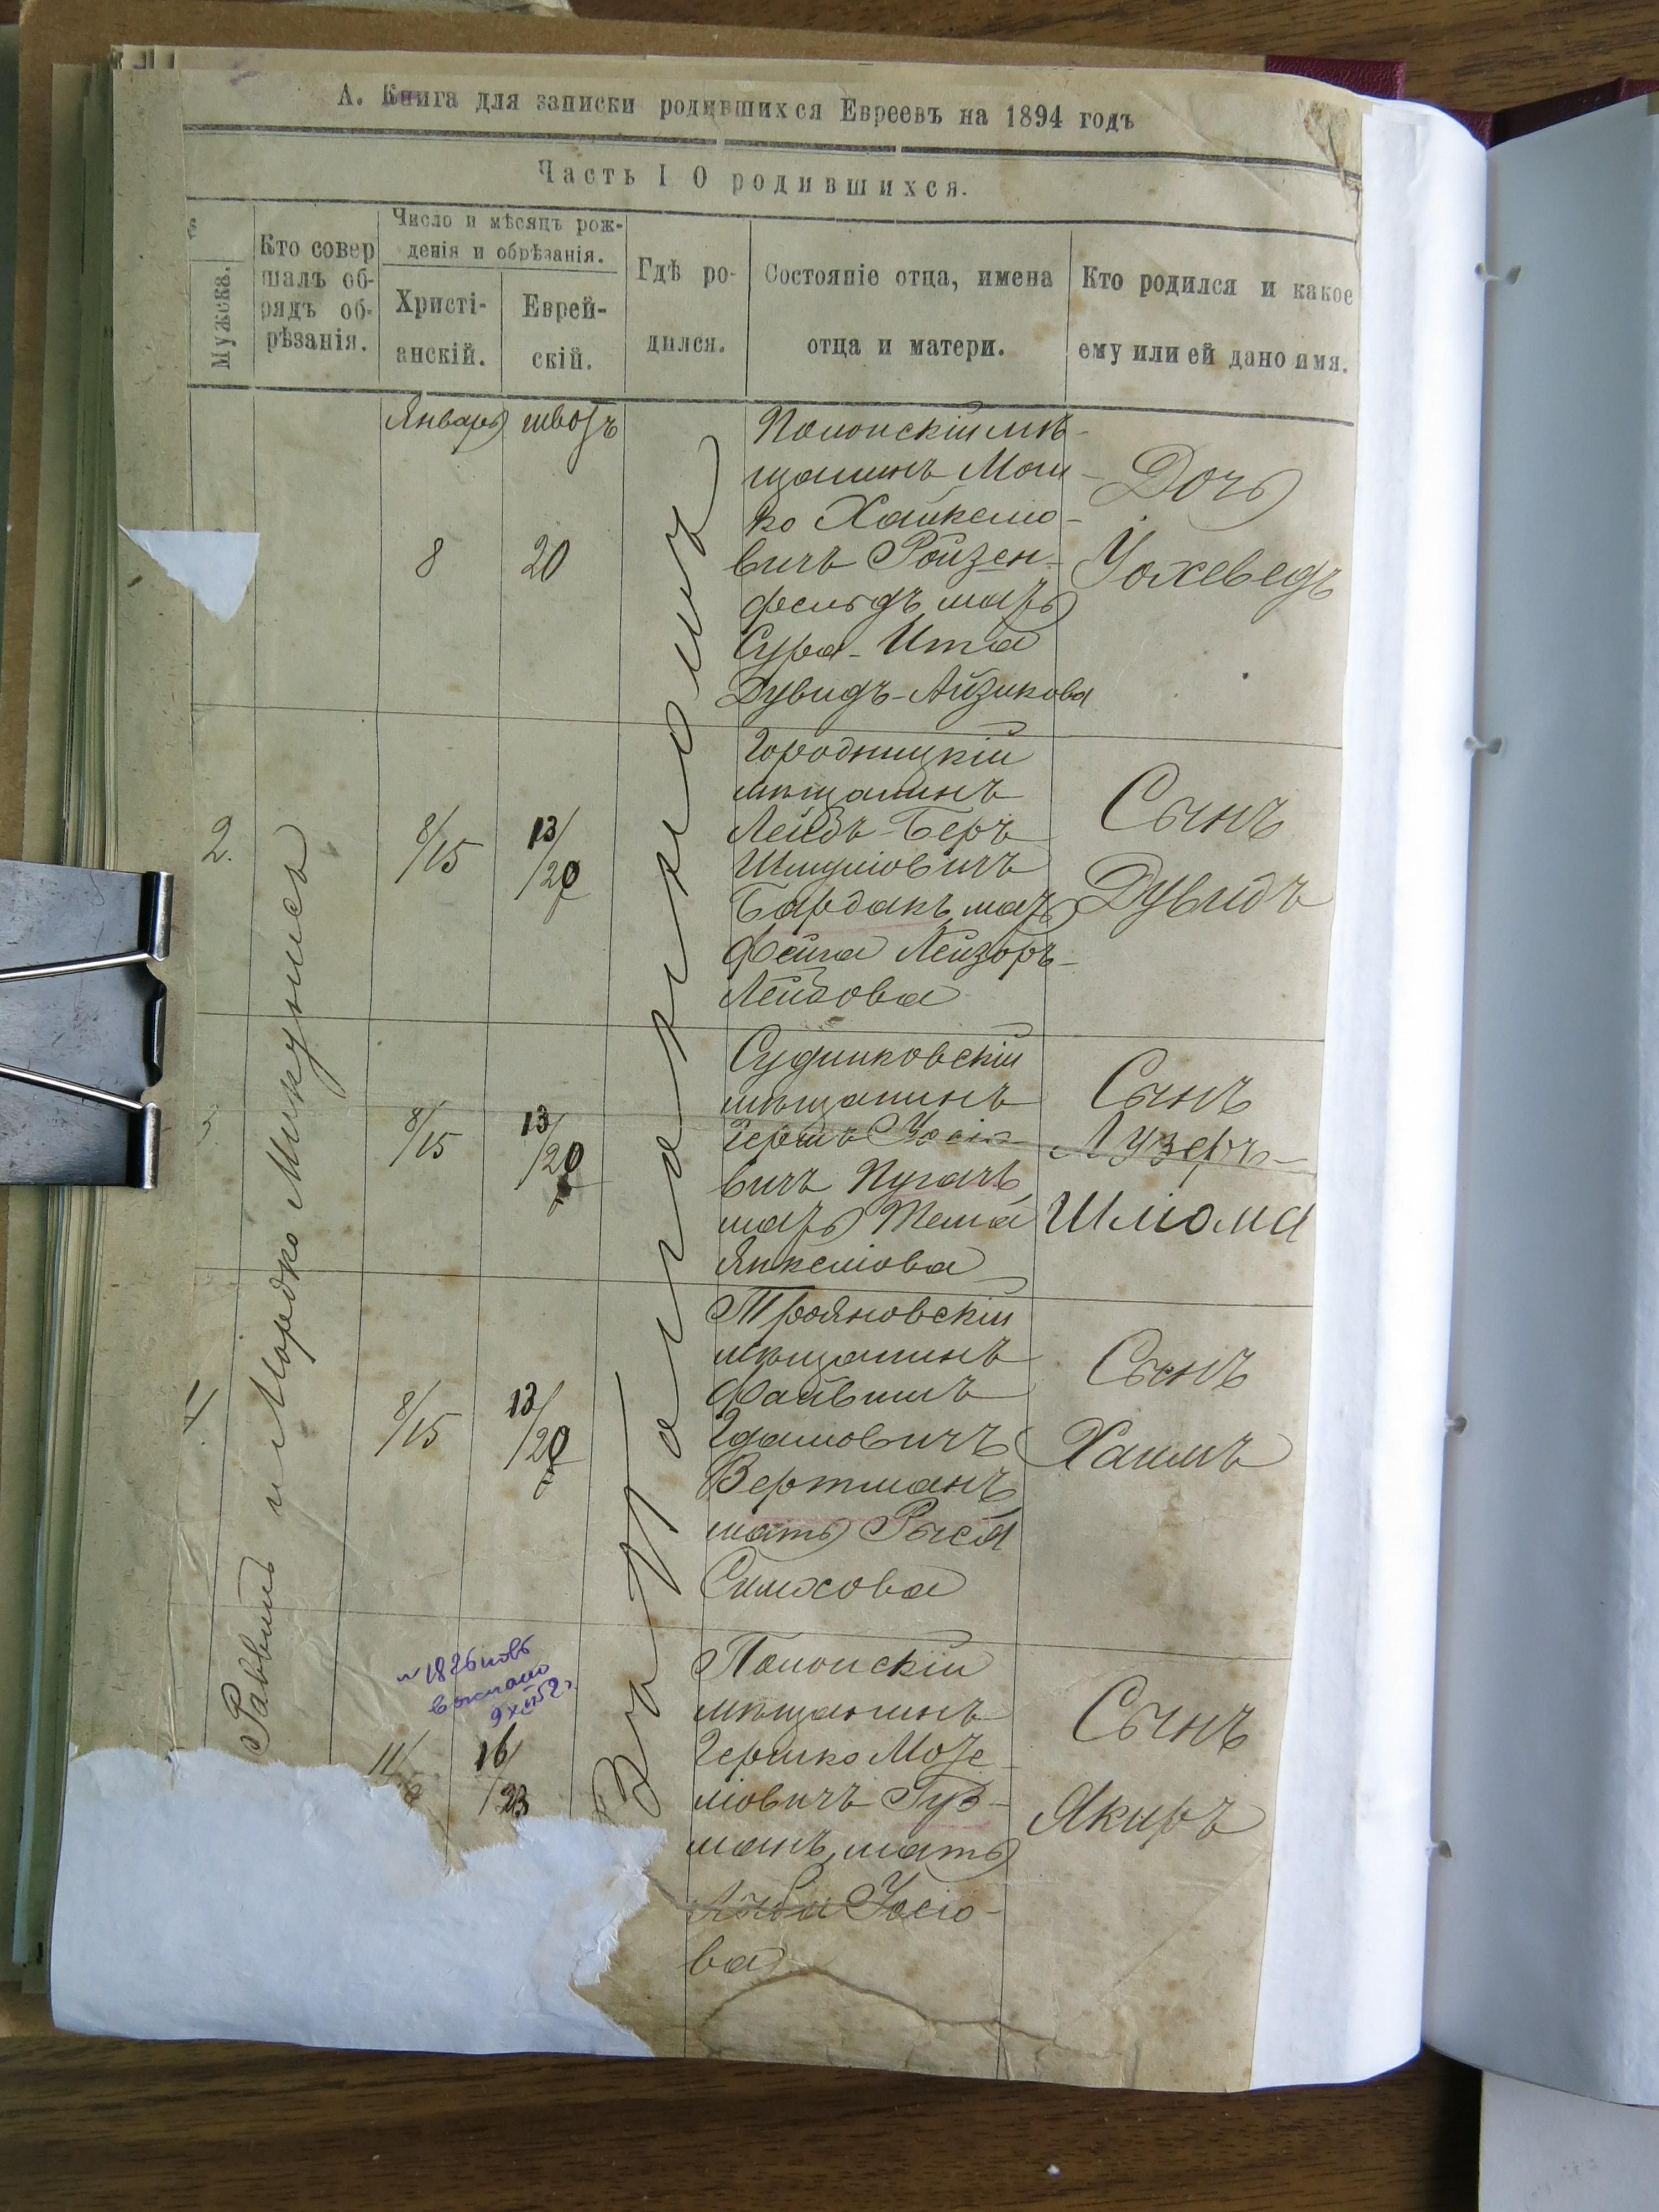 А. Книга для записки родившихся Евреевъ на 1894 годъ
Часть I О родившихся.
Мужска.
Кто совер
шалъ об-
рядъ об-
рѣзанія.
Число и мѣсяцъ рож-
денія и обрѣзанія.
Христі-
анскій.
Еврей-
скій.
Гдѣ ро-
дился.
Состояніе отца, имена
отца и матери.
Кто родился и какое
ему или ей дано имя.
Январь
швотъ
8
20
Полонскій мѣ-
щанинъ Мош-
ко Хайкелю-
вичъ Ройзен-
фельдъ, мать
Сура-Ита
Дувидъ-Айзикова
Дочь
Іохеведъ
2.
8/15
13/20
Городницкій
мѣщанинъ
Лейбъ-Беръ
Шмуліовичъ
Бардакъ, мать
Фейга Лейзоръ-
Лейбова
Сынъ
Дувидъ
8/15
13/20
Судилковскій
мѣщанинъ
Гершъ Іосіо-
вичъ Пугачъ,
мать
Янкеліова
Сынъ
Лузеръ-
Шліома
4
8/15
13/20
Трояновскій
мѣщанинъ
Файвишъ
Гдаліовичъ
Вертманъ
мать Рыся
Симхова
Сынъ
Хаимъ
Раввинъ и Мордко Микунисъ
11/
16/23
Полонскій
мѣщанинъ
Гершко Моте-
ліовичъ Гуз-
манъ, мать
Іосіо-
ва
Сынъ
Якиръ